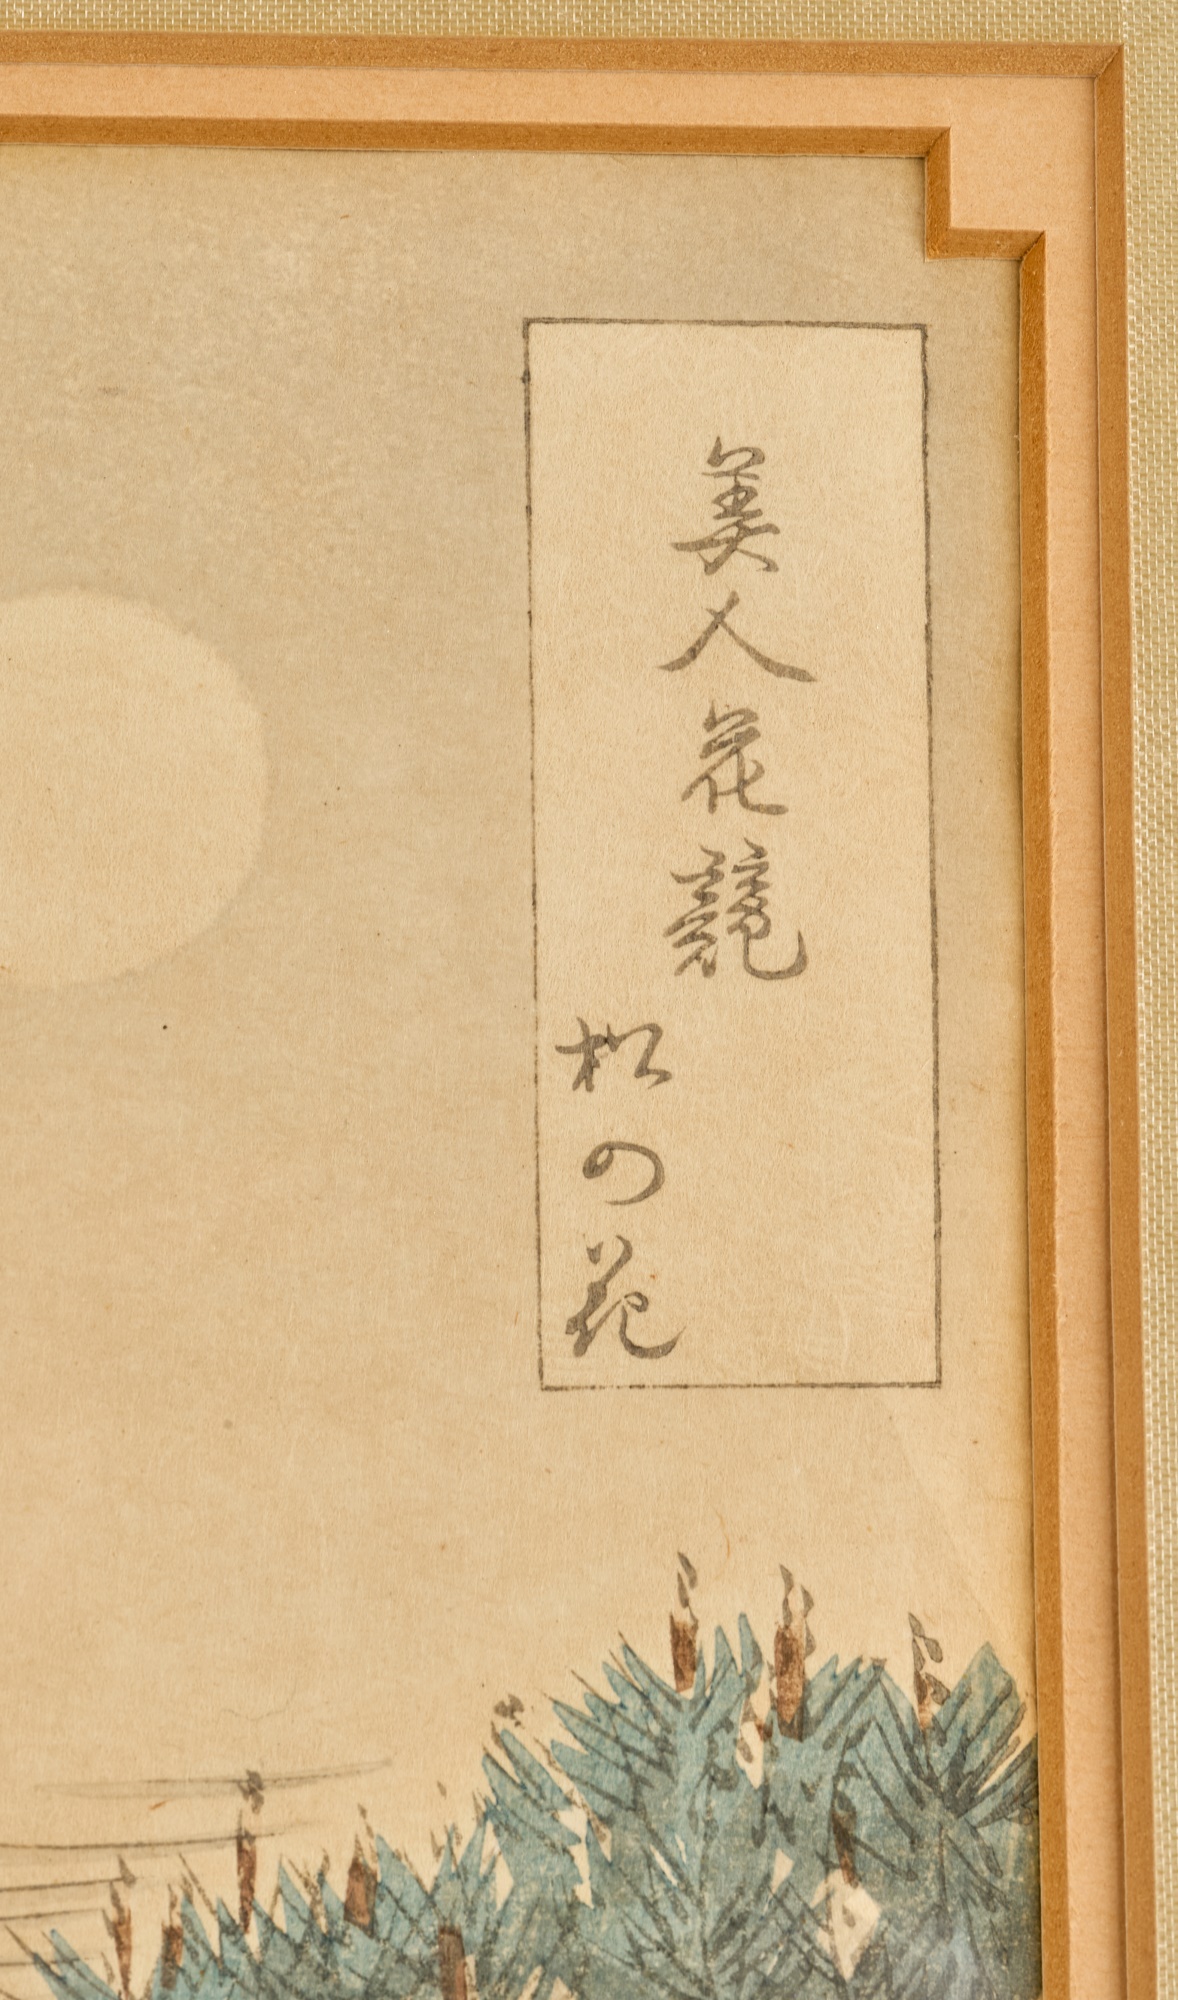 美人花競
松の花